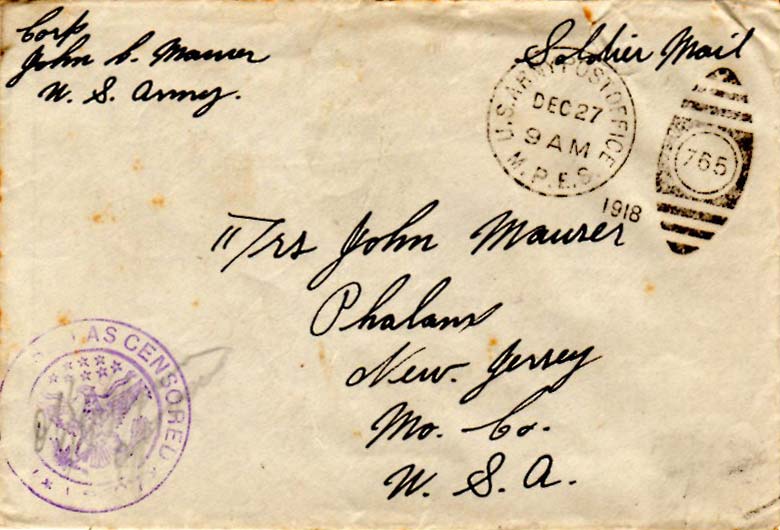 Corp
John C. Maurer
U. S. Army.
Soldier Mail
U.S. ARMY POST OFFICE
DEC 27
9 AM
M.P.E.S.
1918
765
Mrs John Maurer
Phalanx
New. Jersey
Mo. Co.
U. S. A.
AS CENSORED